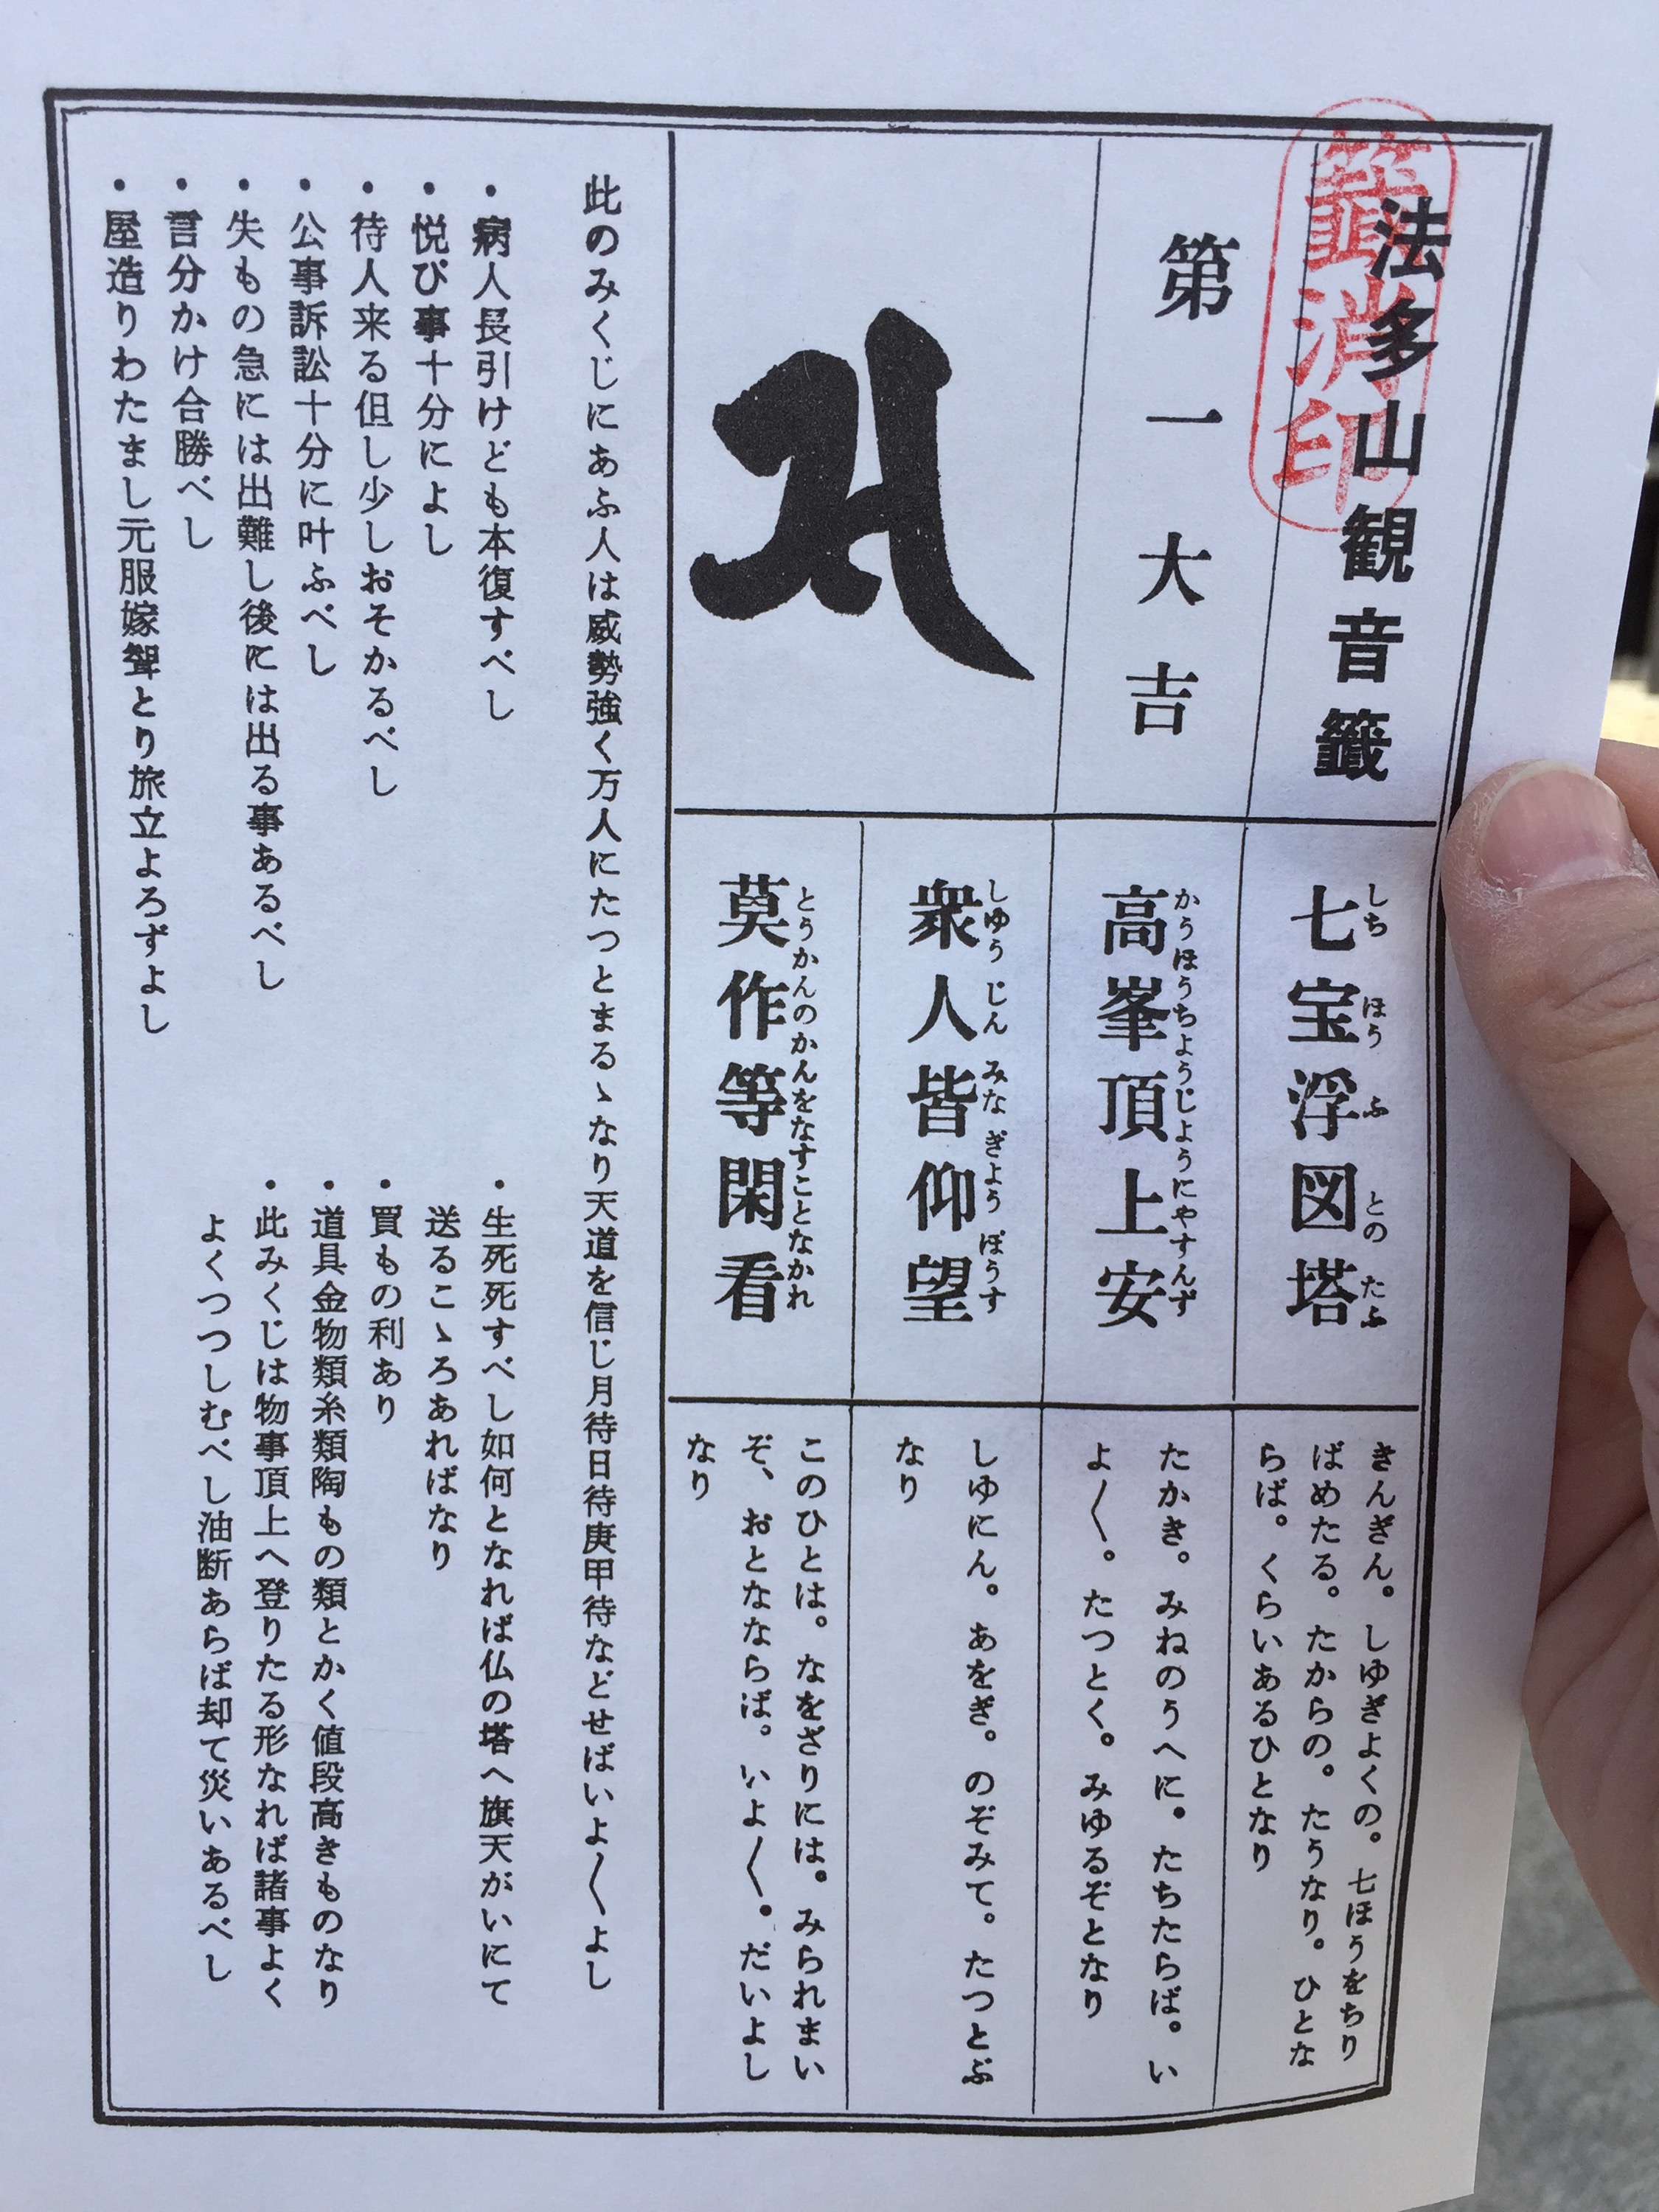 法多山観音籤
籤消印
第一大吉
七宝浮図塔
しちほうふとのたふ
高峯頂上安
かうほうちようじようにやすんず
衆人皆仰望
しゆうじんみなぎようぼうす
莫作等閑看
とうかんのかんをなすことなかれ
きんぎん。しゆぎよくの。七ほうをちり
ばめたる。たからの。たうなり。ひとな
らば。くらいあるひとなり
たかき。みねのうへに。たちたらば。い
よ〱。たつとく。みゆるぞとなり
しゆにん。あをぎ。のぞみて。たつとぶ
なり
このひとは。なをざりには。みられまい
ぞ、おとなならば。いよ〱。だいよし
なり
此のみくじにあふ人は威勢強く万人にたつとまるゝなり天道を信じ月待日待庚甲待などせばいよ〱よし
・病人長引けども本復すべし
・悦び事十分によし
・待人来る但し少しおそかるべし
・公事訴訟十分に叶ふべし
・失もの急には出難し後には出る事あるべし
・言分かけ合勝べし
・屋造りわたまし元服嫁聟とり旅立よろずよし
・生死死すべし如何となれば仏の塔へ旗天がいにて
送るこゝろあればなり
・買もの利あり
・道具金物類糸類陶もの類とかく値段高きものなり
・此みくじは物事頂上へ登りたる形なれば諸事よく
よくつつしむべし油断あらば却て災いあるべし